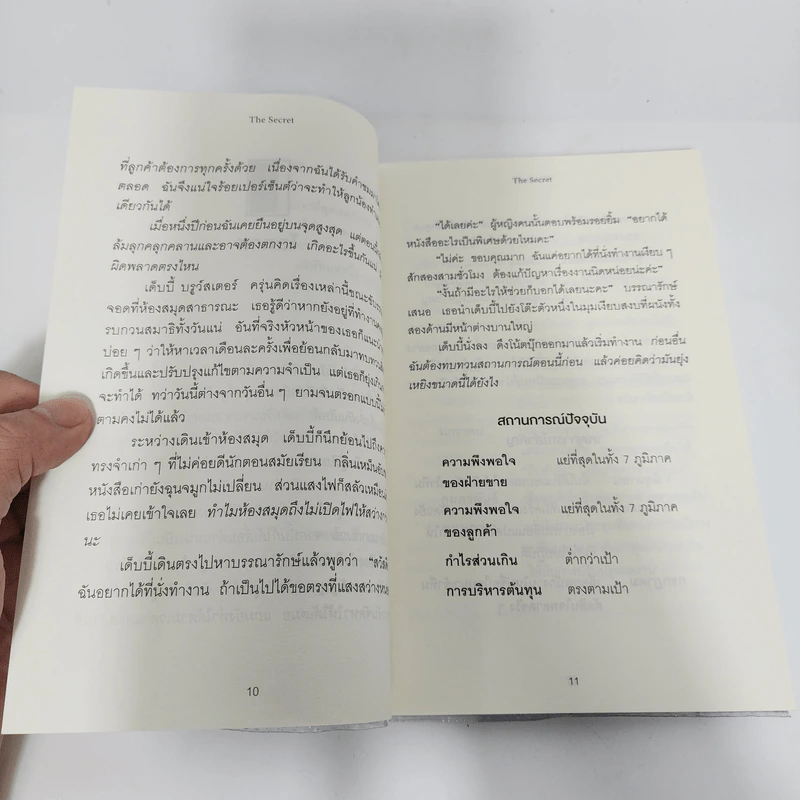 The Secret
ที่ลูกค้าต้องการทุกครั้งด้วย เนื่องจากฉันได้รับคำชมมา
ตลอด ฉันจึงแน่ใจร้อยเปอร์เซ็นต์ว่าจะทำให้ลูกน้อง
เดียวกันได้
เมื่อหนึ่งปีก่อนฉันเคยยืนอยู่บนจุดสูงสุด แต่ตอนนี้
ล้มลุกคลุกคลานและอาจต้องตกงาน เกิดอะไรขึ้นกันแน่
ผิดพลาดตรงไหน
เด็บบี้ บรูว์สเตอร์ ครุ่นคิดเรื่องเหล่านี้ขณะขับรถ
จอดที่ห้องสมุดสาธารณะ เธอรู้ดีว่าหากยังอยู่ที่ทำงาน
รบกวนสมาธิทั้งวันแน่ อันที่จริงหัวหน้าของเธอก็แนะนำ
บ่อย ๆ ว่าให้หาเวลาเดือนละครั้งเพื่อย้อนกลับมาทบทวน
เกิดขึ้นและปรับปรุงแก้ไขตามความจำเป็น แต่เธอก็ยุ่งเกิน
จะทำได้ ทว่าวันนี้ต่างจากวันอื่น ๆ ยามจนตรอกแบบนี้
ตามคงไม่ได้แล้ว
ระหว่างเดินเข้าห้องสมุด เด็บบี้ก็นึกย้อนไปถึง
ทรงจำเก่า ๆ ที่ไม่ค่อยดีนักตอนสมัยเรียน กลิ่นเหม็นอับ
หนังสือเก่ายังฉุนจมูกไม่เปลี่ยน ส่วนแสงไฟก็สลัวเหมือน
เธอไม่เคยเข้าใจเลย ทำไมห้องสมุดถึงไม่เปิดไฟให้สว่าง
นะ
เด็บบี้เดินตรงไปหาบรรณารักษ์แล้วพูดว่า “สวัสดี
ฉันอยากได้ที่นั่งทำงาน ถ้าเป็นไปได้ขอตรงที่แสงสว่าง
10
The Secret
“ได้เลยค่ะ” ผู้หญิงคนนั้นตอบพร้อมรอยยิ้ม “อยากได้
หนังสืออะไรเป็นพิเศษด้วยไหมคะ”
“ไม่ค่ะ ขอบคุณมาก ฉันแค่อยากได้ที่นั่งทำงานเงียบ ๆ
สักสองสามชั่วโมง ต้องแก้ปัญหาเรื่องงานนิดหน่อยน่ะค่ะ”
“งั้นถ้ามีอะไรให้ช่วยก็บอกได้เลยนะคะ” บรรณารักษ์
เสนอ เธอนำเด็บบี้ไปยังโต๊ะตัวหนึ่งในมุมเงียบสงบที่ผนังทั้ง
สองด้านมีหน้าต่างบานใหญ่
เด็บบี้นั่งลง ดึงโน้ตบุ๊กออกมาแล้วเริ่มทำงาน ก่อนอื่น
ฉันต้องทบทวนสถานการณ์ตอนนี้ก่อน แล้วค่อยคิดว่ามันยุ่ง
เหยิงขนาดนี้ได้ยังไง
สถานการณ์ปัจจุบัน
ความพึงพอใจ แย่ที่สุดในทั้ง 7 ภูมิภาค
ของฝ่ายขาย
ความพึงพอใจ แย่ที่สุดในทั้ง 7 ภูมิภาค
ของลูกค้า
กำไรส่วนเกิน ต่ำกว่าเป้า
การบริหารต้นทุน ตรงตามเป้า
11